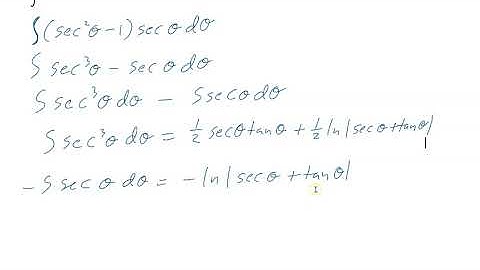 ∫(sec²θ-1) secθ dθ
∫ sec³θ - secθ dθ
∫ sec³θ dθ - ∫ secθ dθ
∫ sec³θ dθ = 1/2 secθ tanθ + 1/2 ln|secθ + tanθ|
- ∫ sec θ dθ = - ln|secθ + tanθ|